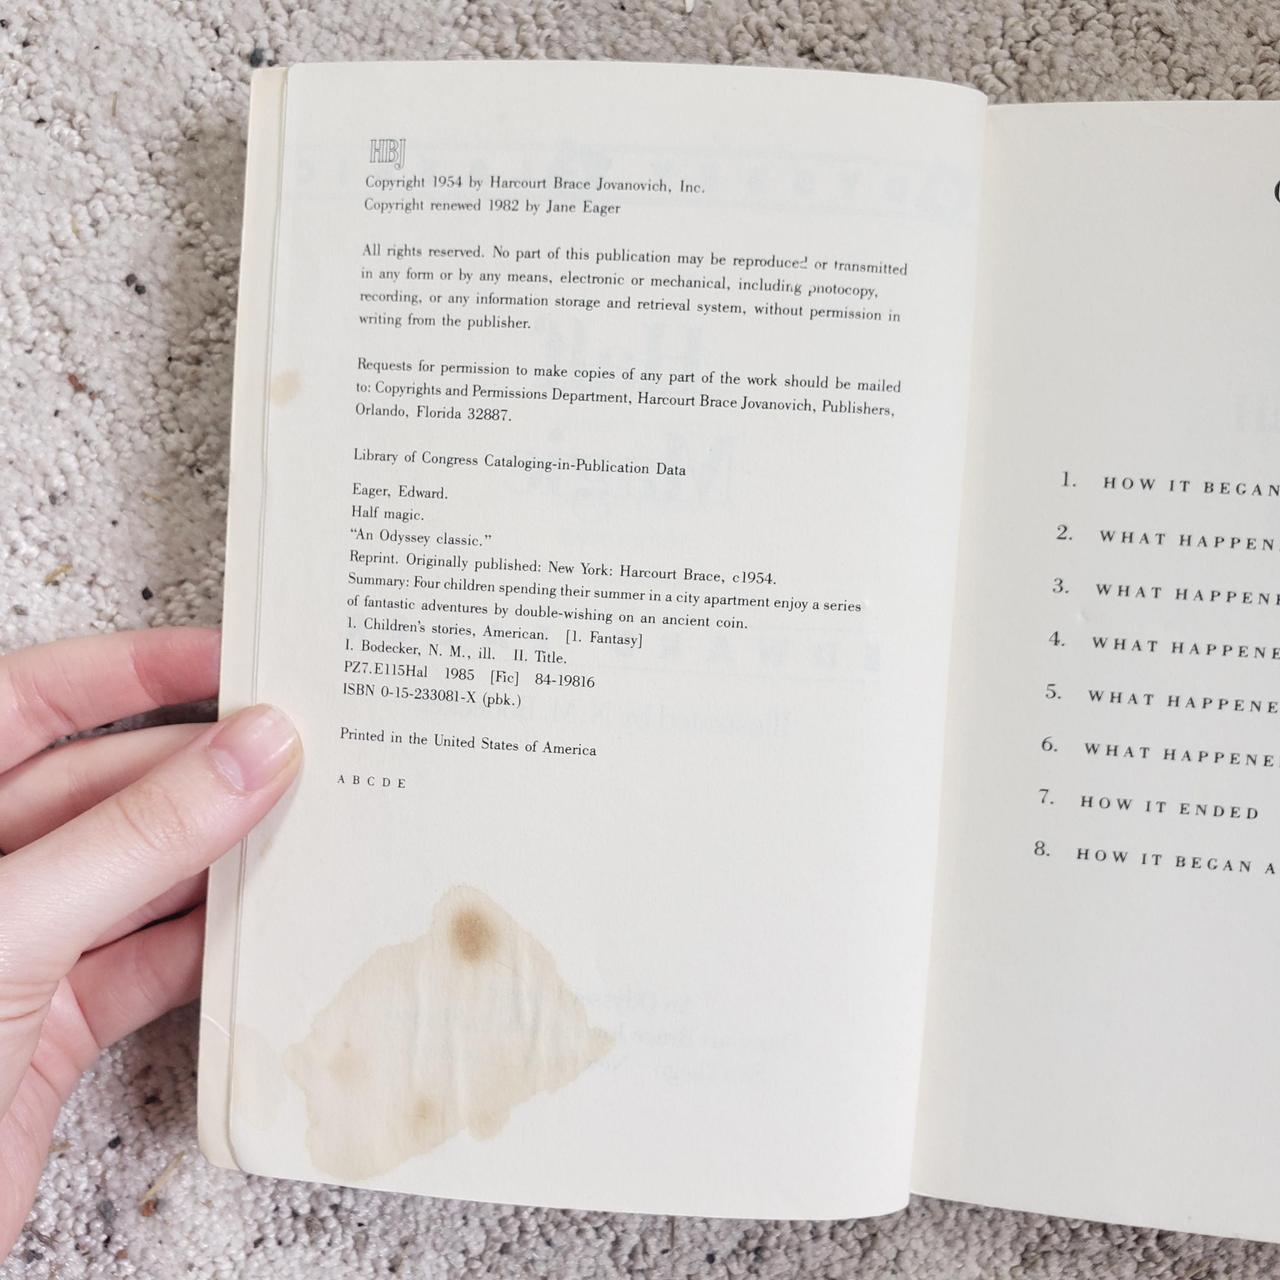 HBJ
Copyright 1954 by Harcourt Brace Jovanovich, Inc.
Copyright renewed 1982 by Jane Eager
All rights reserved. No part of this publication may be reproduced or transmitted
in any form or by any means, electronic or mechanical, including photocopy,
recording, or any information storage and retrieval system, without permission in
writing from the publisher.
Requests for permission to make copies of any part of the work should be mailed
to: Copyrights and Permissions Department, Harcourt Brace Jovanovich, Publishers,
Orlando, Florida 32887.
Library of Congress Cataloging-in-Publication Data
Eager, Edward.
Half magic.
“An Odyssey classic.”
Reprint. Originally published: New York: Harcourt Brace, c1954.
Summary: Four children spending their summer in a city apartment enjoy a series
of fantastic adventures by double-wishing on an ancient coin.
1. Children’s stories, American. [1. Fantasy]
I. Bodecker, N. M., ill. II. Title.
PZ7.E115Hal 1985 [Fic] 84-19816
ISBN 0-15-233081-X (pbk.)
Printed in the United States of America
A B C D E
1. HOW IT BEGAN
2. WHAT HAPPEN
3. WHAT HAPPENE
4. WHAT HAPPENE
5. WHAT HAPPENE
6. WHAT HAPPENE
7. HOW IT ENDED
8. HOW IT BEGAN A